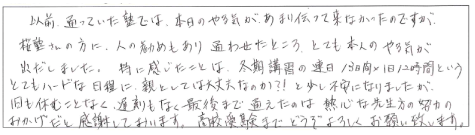 以前、通っていた塾では、本日のやる気が、あまり伝って来なかったのですが、
桜塾さんの方に、人の勧めもあり通わせたところ、とても本人のやる気が
出だしました。特に感じたことは、冬期講習の連日13日間×1日12時間という
とてもハードな日程に、親としては大丈夫なのか?!と少し不安になりましたが、
1日も休むことなく、遅刻もなく最後まで通えたのは、熱心な先生方の努力の
おかげだと感謝しております。高校受験までどうぞよろしくお願い致します。